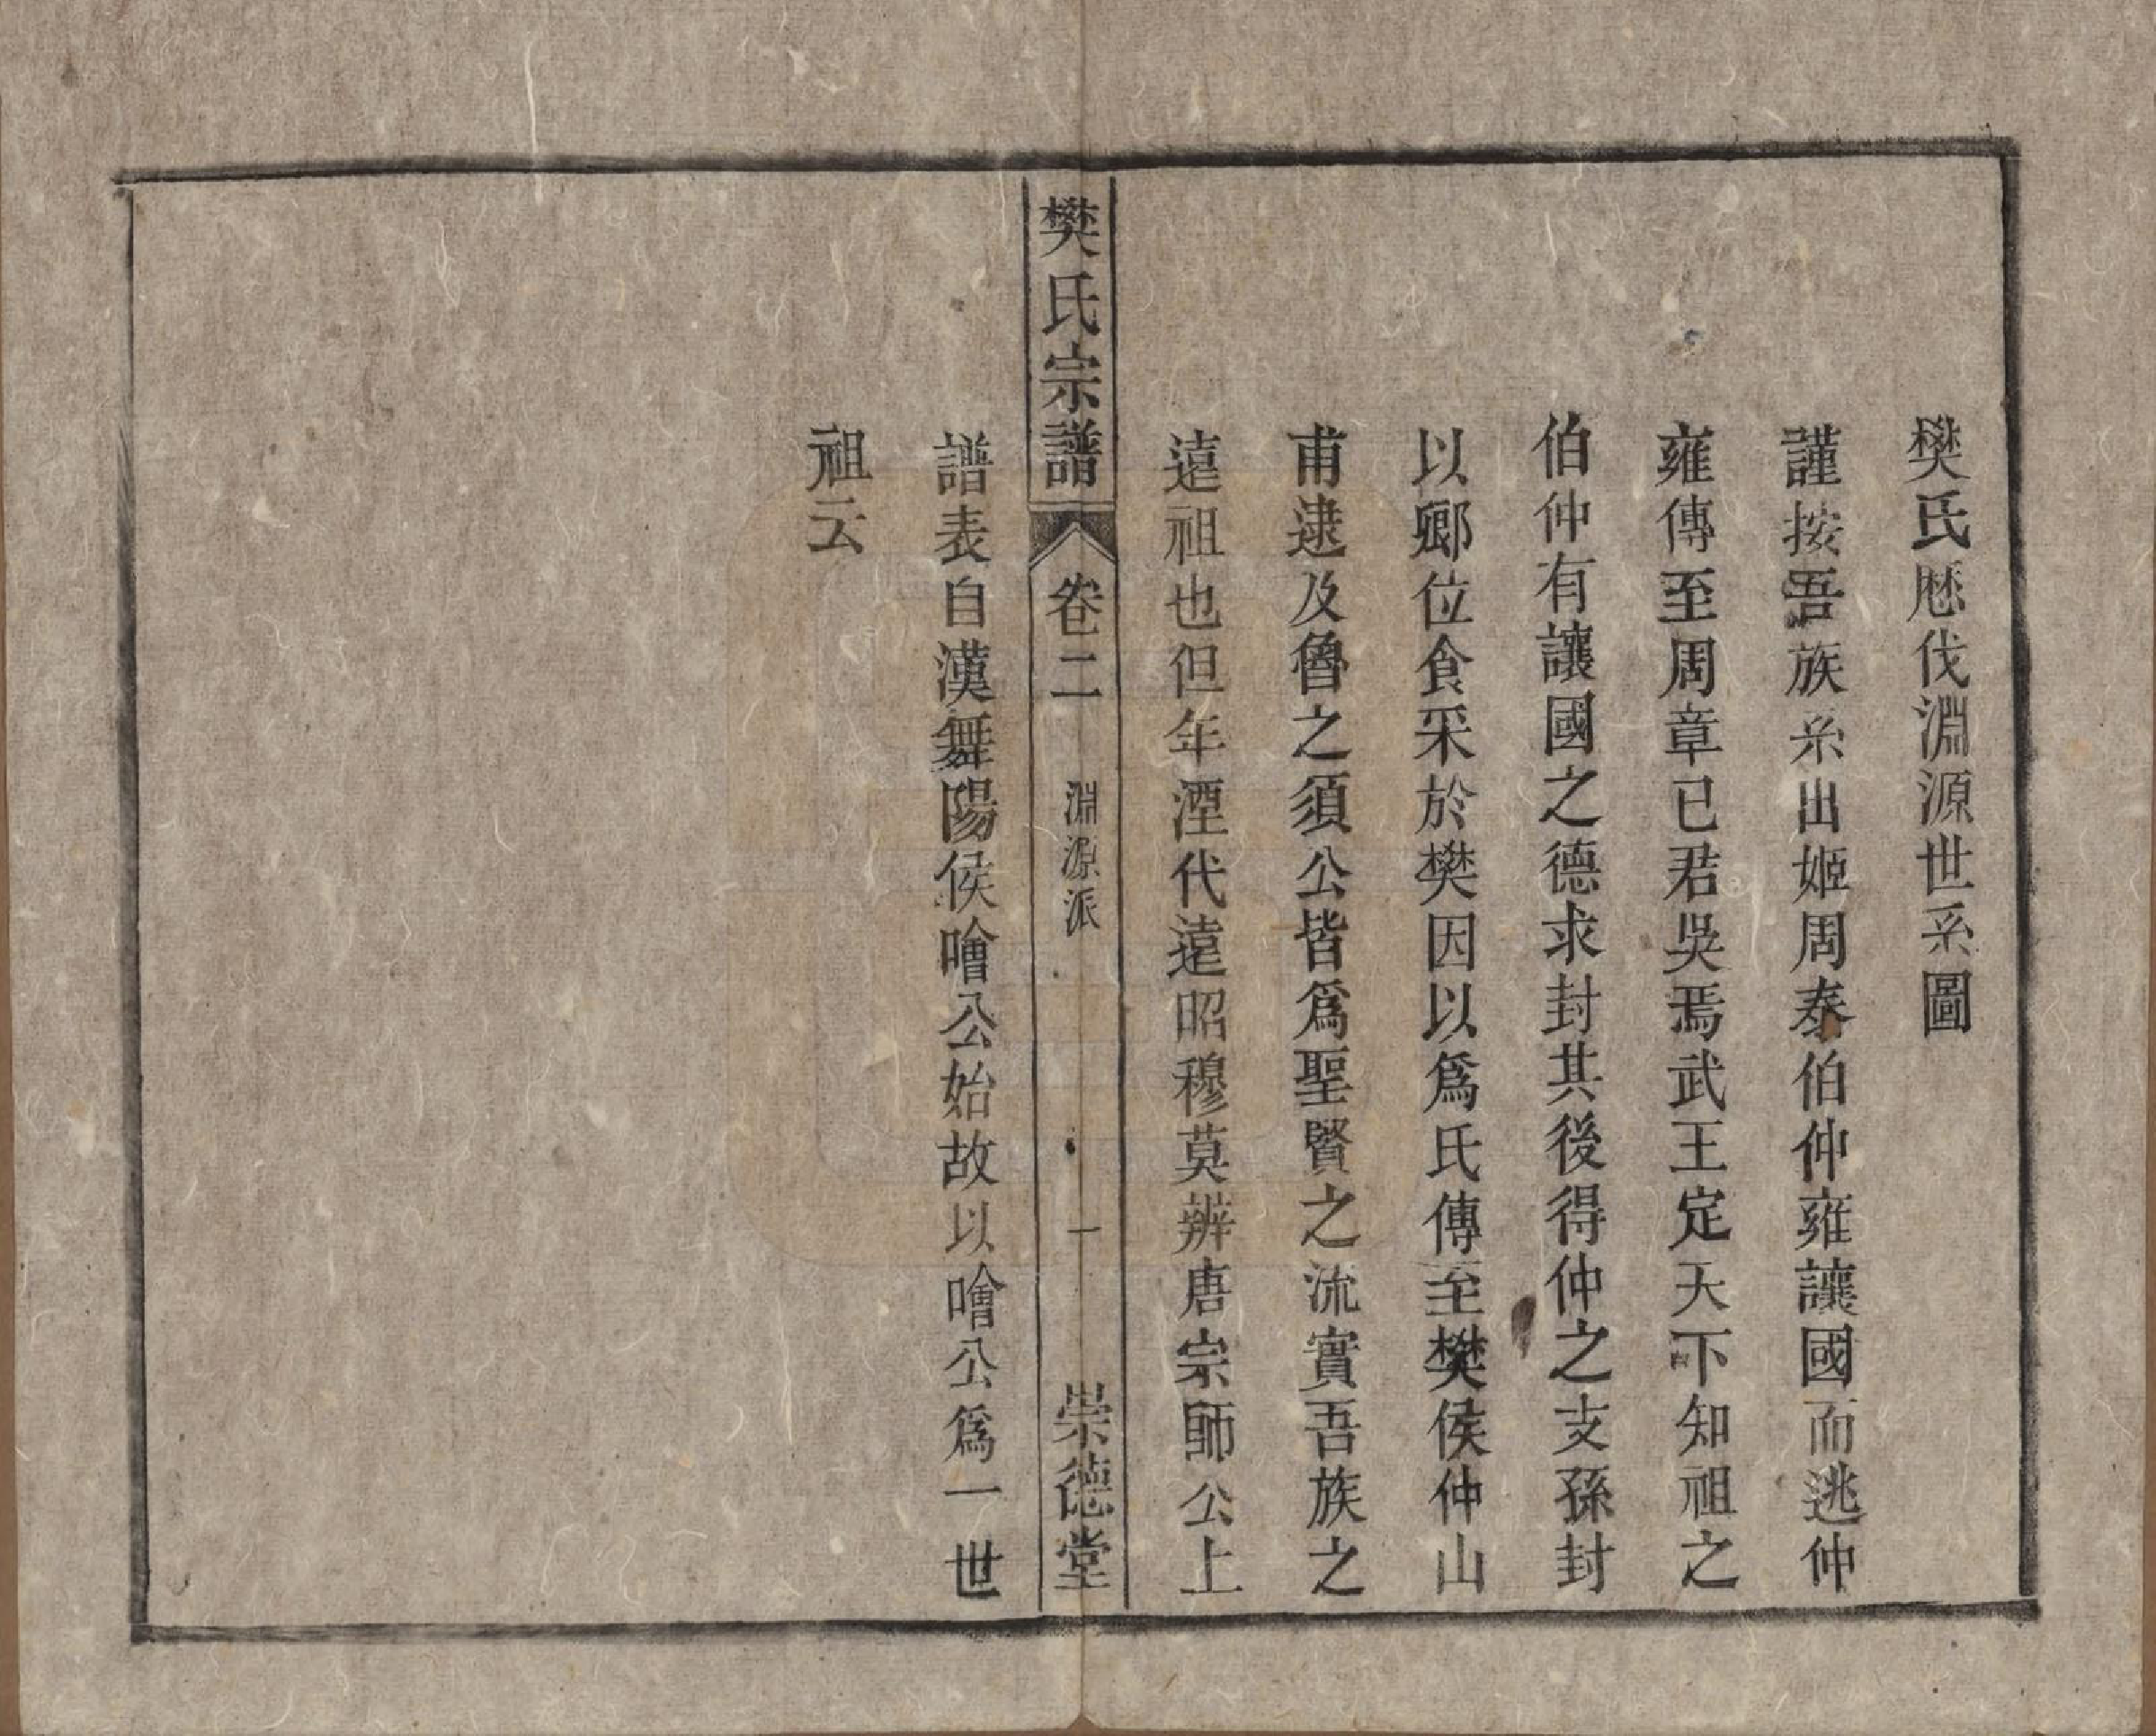 樊氏厯伐淵源世系圖
謹按吾族系出姬周泰伯仲雍讓國而逃仲
雍傳至周章已君吳焉武王定天下知祖之
伯仲有讓國之德求封其後得仲之支孫封
以鄉位食采於樊因以爲氏傳至樊侯仲山
甫逮及魯之須公皆爲聖賢之流實吾族之
遠祖也但年湮代遠昭穆莫辨唐宗師公上
樊氏宗譜 卷二 淵源派 一 崇德堂
譜表自漢舞陽侯噲公始故以噲公爲一世
祖云